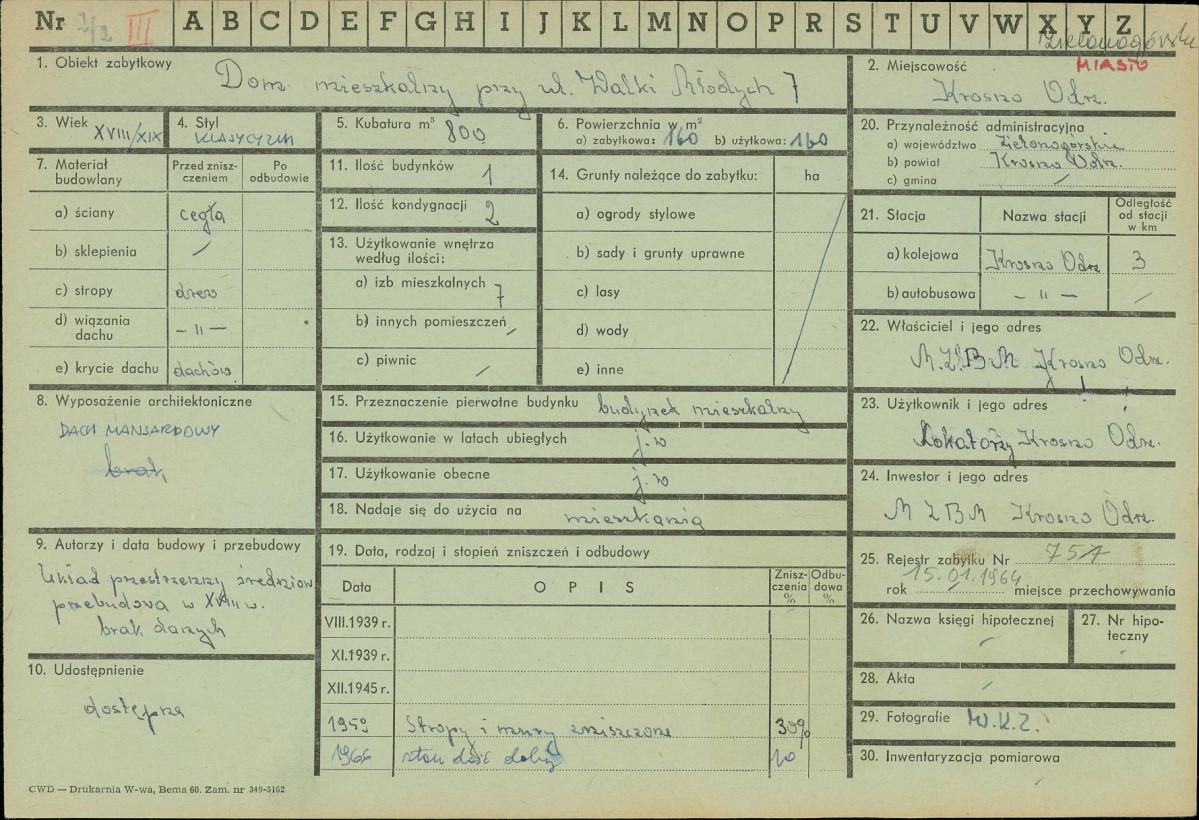 Nr III A B C D E F G H I J K L M N O P R S T U V W X Y Z
Zielonogórskie
1. Obiekt zabytkowy Dom mieszkalny przy ul. Walki Młodych 7
2. Miejscowość MIASTO
Krosno Odrz.
3. Wiek XVIII/XIX
4. Styl KLASYCYZM
5. Kubatura m³ 800
6. Powierzchnia w m²
a) zabytkowa: 160 b) użytkowa: 160
20. Przynależność administracyjna
a) województwo Zielonogórskie
b) powiat Krosno Odrz.
c) gmina /
7. Materiał budowlany
Przed zniszczeniem
Po odbudowie
a) ściany cegła
b) sklepienia /
c) stropy drew
d) wiązania dachu — " —
e) krycie dachu dachów.
11. Ilość budynków 1
12. Ilość kondygnacji 2
13. Użytkowanie wnętrza według ilości:
a) izb mieszkalnych 7
b) innych pomieszczeń /
c) piwnic /
14. Grunty należące do zabytku: ha
a) ogrody stylowe
b) sady i grunty uprawne
c) lasy
d) wody
e) inne
21. Stacja Nazwa stacji Odległość od stacji w km
a) kolejowa Krosno Odrz 3
b) autobusowa — " — /
22. Właściciel i jego adres
M.Z.B.M Krosno Odrz.
8. Wyposażenie architektoniczne
DACH MANSARDOWY
brak
15. Przeznaczenie pierwotne budynku budynek mieszkalny
16. Użytkowanie w latach ubiegłych j.w
17. Użytkowanie obecne j.w
18. Nadaje się do użycia na mieszkania
23. Użytkownik i jego adres
Lokatorzy Krosno Odrz.
24. Inwestor i jego adres
M Z B M Krosno Odrz.
9. Autorzy i data budowy i przebudowy
Układ przestrzenny średniow
przebudowa w XVIII w.
brak danych
10. Udostępnienie
dostępna
19. Data, rodzaj i stopień zniszczeń i odbudowy
Data OPIS Zniszczenia % Odbudowa %
VIII.1939 r.
XI.1939 r.
XII.1945 r.
1959 Stropy i mury zniszczone 30%
1966 stan dość dobry
25. Rejestr zabytku Nr 757
15.01.1964
rok miejsce przechowywania
26. Nazwa księgi hipotecznej /
27. Nr hipoteczny
28. Akta /
29. Fotografie W.K.Z.
30. Inwentaryzacja pomiarowa
CWD — Drukarnia W-wa, Bema 60. Zam. nr 349-5162